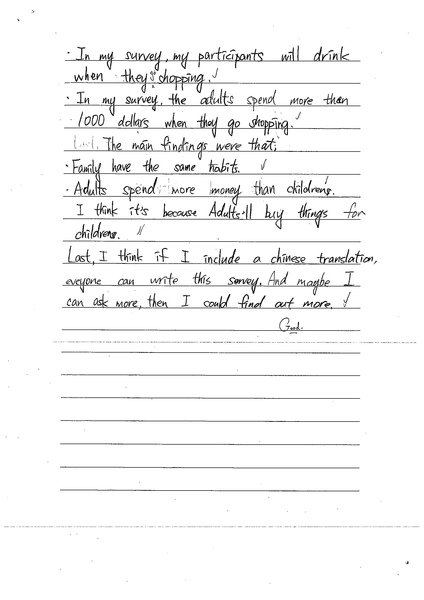 · In my survey, my participants will drink
when they go shopping.
· In my survey, the adults spend more than
1000 dollars when they go shopping.
The main findings were that:
· Family have the same habits.
· Adults spend more money than childrens.
I think it's because Adults'll buy things for
childrens.
Last, I think if I include a chinese translation,
eveyone can write this survey. And maybe I
can ask more, then I could find out more.
Good.